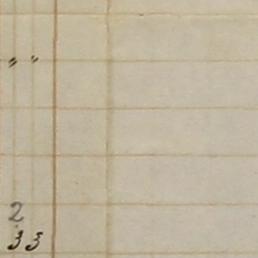 " "
2
3 3